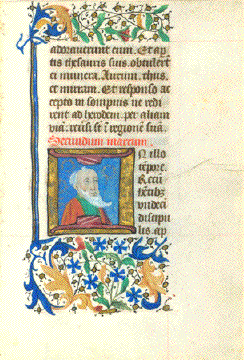 adoraverunt eum. Et aper
tis thesauris suis obtulert
ei munera. Aurum, thus,
et mirram. Et responso ac
cepto in sompnis ne redi
rent ad herodem per aliam
viā reversi sūt ī regionē suā.
Secundum marcum.
N illo
tēpore.
Recū
tētibꝫ
undeci
discipu
lis. ap